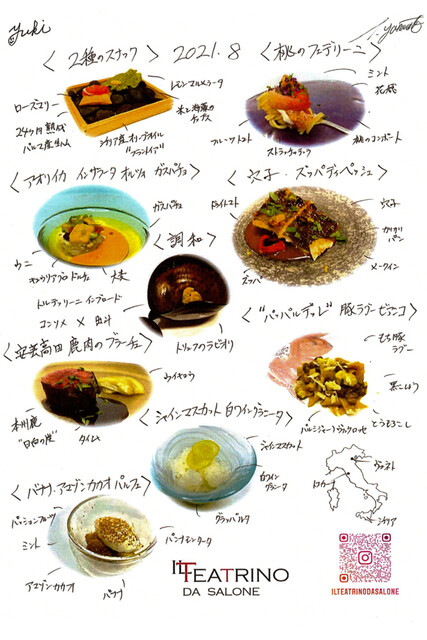 Yuki
〈 2種のスナック 〉
2021.8
〈 桃のフェデリーニ 〉
レモンマルメラータ
ローズマリー
米と海藻の
チップス
24ヶ月熟成
パルマ産生ハム
シチリア産オリーブオイル
ミント
花穂
フルーツトマト
ストラッチャテッラ
桃のコンポート
〈 アオリイカ インサラータ オルツォ ガスパチョ 〉
ガスパチョ
ウニ
大麦
〈 穴子・ズッパディペッシェ 〉
ドライトマト
穴子
カリカリ
パン
ズッパ
メークイン
〈 調和 〉
トルテッリーニ インブロード
コンソメ ×
トリュフのラビオリ
〈 "パッパルデッレ" 豚ラグービアンコ 〉
もち豚
ラグー
黒こしょう
とうもろこし
パルミジャーノ
〈 安芸高田 鹿肉のブラーチェ 〉
本州鹿
タイム
〈 シャインマスカット 白ワイングラニータ 〉
シャインマスカット
白ワイン
グラニータ
グラッパゼリー
〈 バナナ・アマゾンカカオ パルフェ 〉
パッションフルーツ
ミント
アマゾンカカオ
バナナ
ヴェネト
トスカーナ
シチリア
IL TEATRINO
DA SALONE
ILTEATRINODASALONE